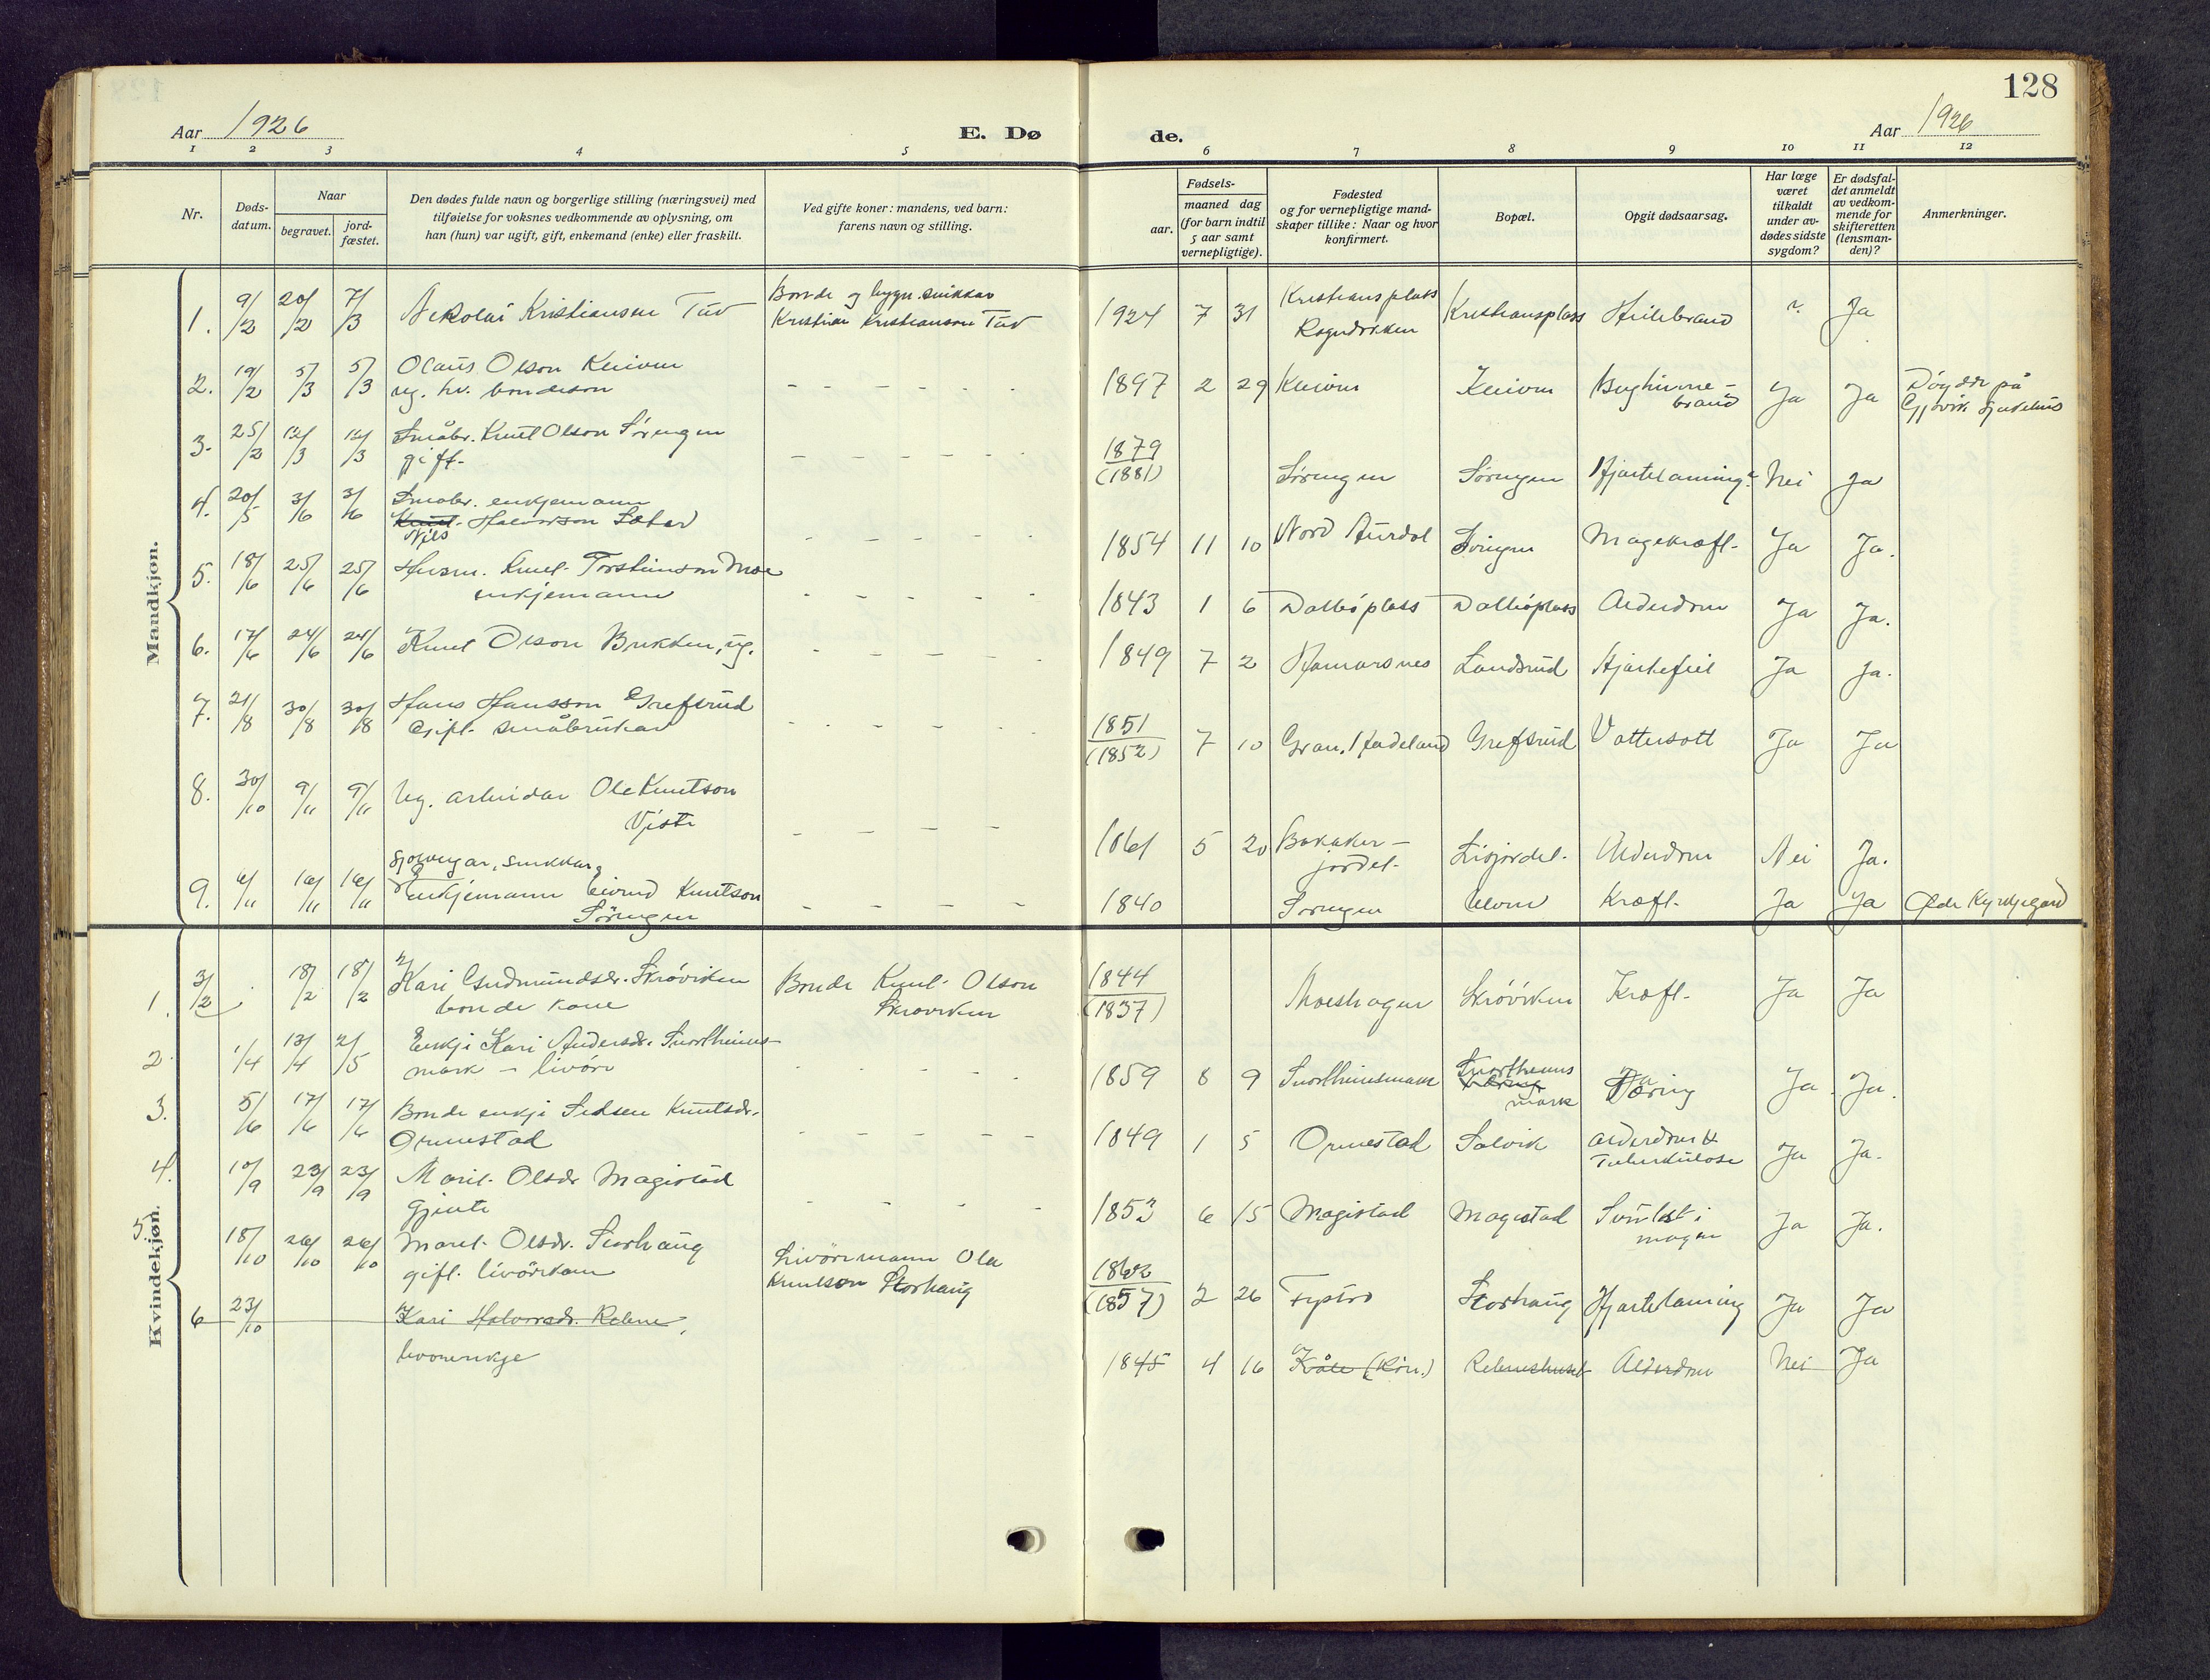 128
Aar 1926
E. Dø
de.
Aar 1926
1 2 3 4 5
6 7 8 9 10 11 12
Nr.
Døds-
datum.
Naar
begravet.
jord-
fæstet.
Den dødes fulde navn og borgerlige stilling (næringsvei) med
tilføielse for voksnes vedkommende av oplysning, om
han (hun) var ugift, gift, enkemand (enke) eller fraskilt.
Ved gifte koner: mandens, ved barn:
farens navn og stilling.
Fødsels-
aar.
maaned dag
(for barn indtil
5 aar samt
vernepligtige).
Fødested
og for vernepligtige mand-
skaper tillike: Naar og hvor
konfirmert.
Bopæl.
Opgit dødsaarsag.
Har læge
været
tilkaldt
under av-
dødes sidste
sygdom?
Er dødsfal-
det anmeldt
av vedkom-
mende for
skifteretten
(lensman-
den)?
Anmerkninger.
Mandkjøn.
1. 9/2 20/2 7/3 Nikolai Kristiansen Tuv
Bonde og bygn. snikkar
Kristian Kristiansen Tuv
1924 7 31 Kristiansplass
Rogndokken
Kristiansplass ? Ja
2. 19/2 5/3 5/3 Olaus Olson
ug. hv. bondeson
- - - - -
1897 2 29 Ja Ja
Døydde på
Gjøvik sjukehus
3. 25/2 12/3 12/3 Småbr. Knut Olson Sørengen
gift.
- - - - -
1879
(1881) Sørengen Sørengen Hjartelaming? Nei Ja
4. 20/5 3/6 3/6 Småbr. enkjemann
Knut Halvorson Sæter
Nils
- - - -
1854 11 10 Nord Aurdal Magekræft. Ja Ja.
5. 18/6 25/6 25/6 Husm. Knut Torsteinson Moe
enkjemann
- - - - -
1843 1 6 Alderdom Ja Ja.
6. 17/6 24/6 24/6 Knut Olson Brekken, ug.
- - - - -
1849 7 2 Hamarsnes Landsrud Hjartefeil Ja Ja.
7. 21/8 30/8 30/8 Hans Hansson Grefsrud
Gift. småbrukar
- - - - -
1851
(1852) 7 10 Gran, Hadeland Grefsrud Vattersott Ja Ja
8. 30/10 9/11 9/11 Ug. arbeidar Ole Knutson
- - - -
1861 5 20
jordet. Alderdom Nei Ja.
9. 6/11 16/11 16/11 snikkar,
enkjemann Eivind Knutson
Sørengen
- - - -
1840 Sørengen Kræft. Ja Ja Kyrkjegard
Kvindekjøn.
1. 3/2 18/2 18/2 Kari Gudmundsdr. Skrøvik­en
bonde kone
Bonde Knut Olson
1844
(1837) Moeshagen Kræft. Ja Ja
2. 1/4 13/4 2/5 Enkji Kari Andersdr. Snortheims-
mark - livøri
- - - -
1859 8 9 Snortheimsmark Snortheims
mark Tæring Ja. Ja.
3. 5/6 17/6 17/6 Bonde enkji Sidsen Knutsdr.
Ormestad
- - - - -
1849 1 5 Ormestad Salvik Alderdom &
Tuberkulose Ja Ja.
4. 10/9 23/9 23/9 Marit Olsdr Magistad
Gjente
- - - -
1853 6 15 Magistad Magistad
magen Ja Ja.
5. 18/10 26/10 26/10 Marit Olsdr. Storhaug
gift. livørikone
Livørimann Ola
Knutson Storhaug
1862
(1857) 2 26 Storhaug Hjartelaming Ja Ja
6 23/10 Kari Halvorsdr. Robøle,
1845 4 16 Alderdom Nei Ja